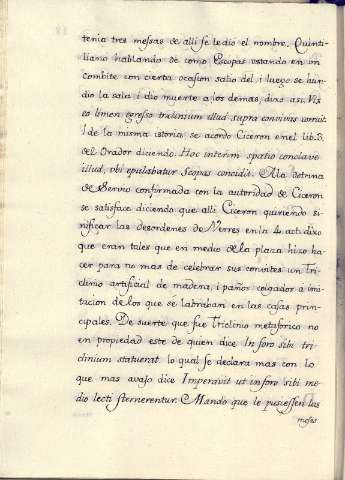 tenia tres messas de alli se le dio el nombre. Quinti-
liano hablando de como Escopas estando en un
combite con cierta ocasion salio del i luego se hun-
dio la sala i dio muerte a los demas, dixo asi. Vix
eo limen egresso triclinium illud supra convivas corruit.
I de la misma istoria, se acordo Ciceron en el lib. 3.
del Orador diciendo. Hoc interim spatio conclave
illud, ubi epulabatur Scopas concidit. A la dotrina
de Servio confirmada con la autoridad de Ciceron
se satisface diciendo que alli Ciceron quiriendo si-
nificar las desordenes de Verres en la 4. act. dixo
que eran tales que en medio de la plaza hizo ha-
cer para no mas de celebrar sus convites un Tri-
clinio artificial de madera, i paños colgados a imi-
tacion de los que se labraban en las casas prin-
cipales. De suerte que fue Triclinio metaforico no
en propiedad este de quien dice In foro sibi tri-
clinium statuerat. lo qual se declara mas con lo
que mas avajo dice Imperavit ut in foro sibi me-
dio lecti sternerentur. Mando que le pusiessen las
mesas